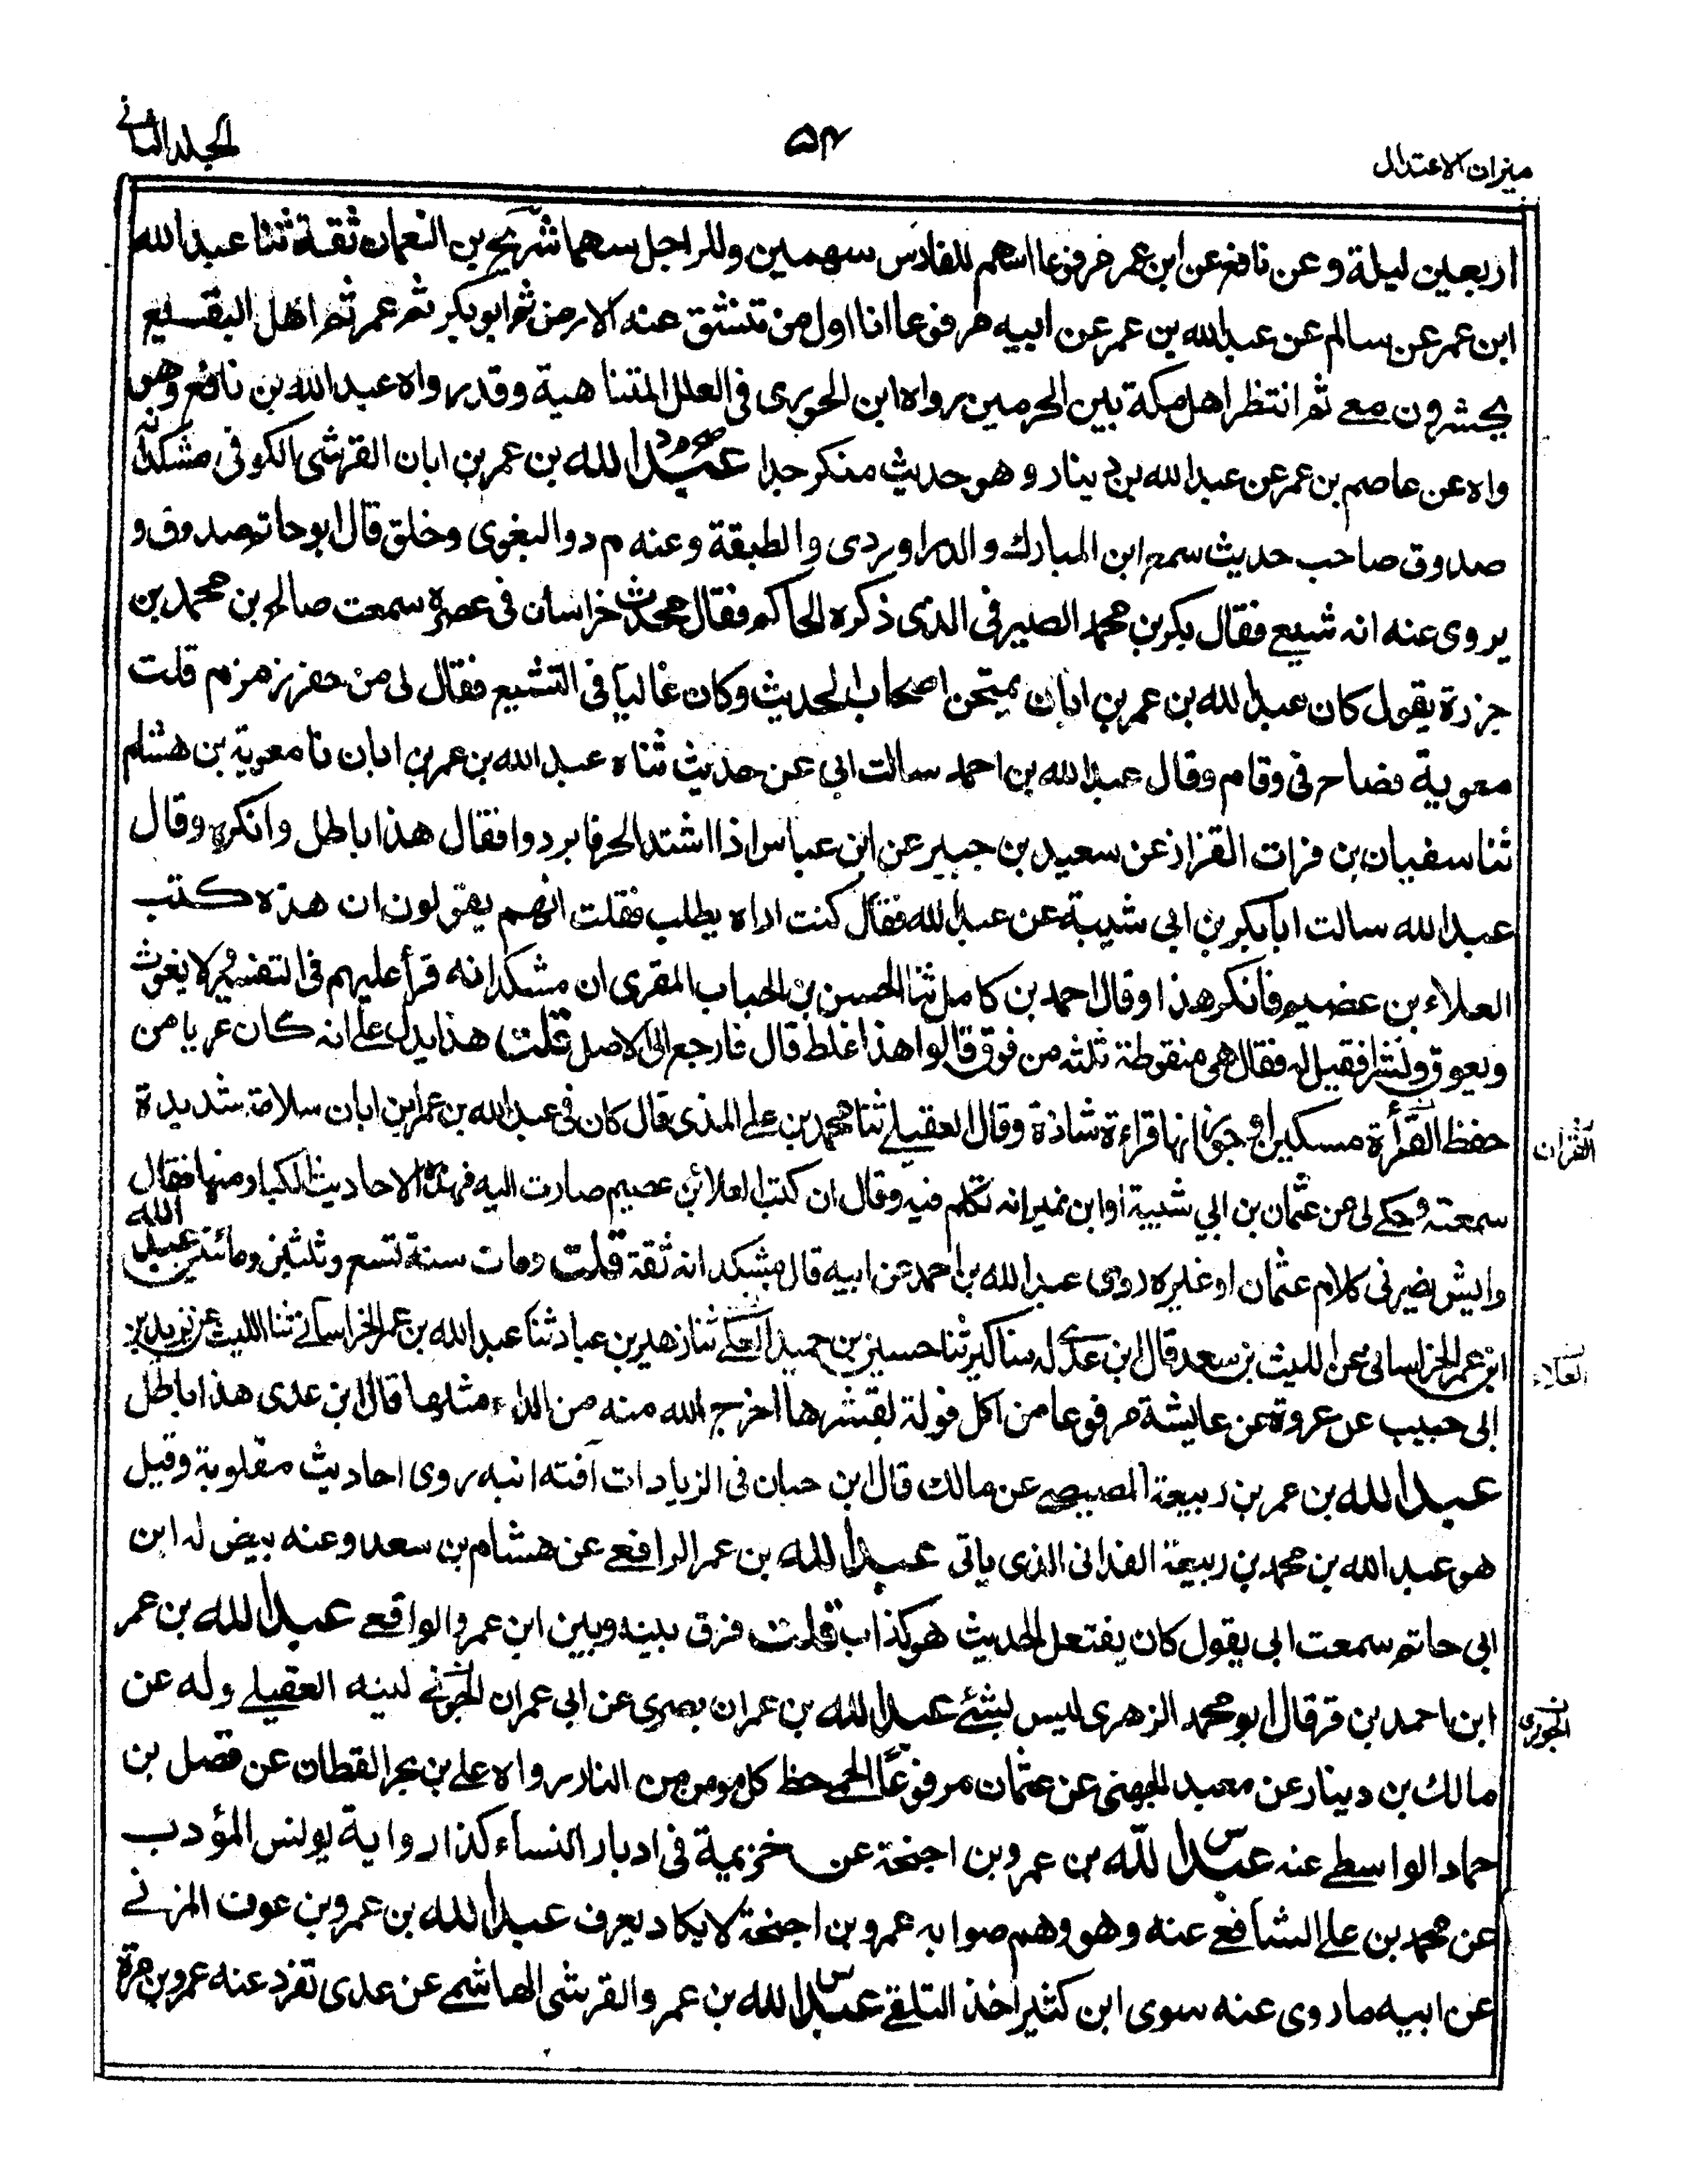 ميزان الاعتدال
٥٤
المجلد الثاني
اربعين ليلة وعن نافع عن ابن عمر مرفوعا اسهم للفارس سهمين وللراجل سهما شريح بن النعمان ثقة ثنا عبد الله
ابن عمر عن سالم عن عبد الله بن عمر عن ابيه مرفوعا انا اول من تنشق عنه الارض ثم ابو بكر ثم عمر ثم اهل البقيع
يحشرون مع ثم انتظر اهل مكة بين الحرمين رواه ابن الجوزى فى العلل المتناهية وقد رواه عبد الله بن نافع وهو
واه عن عاصم بن عمر عن عبد الله بن دينار وهو حديث منكر جدا عبد الله بن عمر بن ابان القرشى الكوفى مشكدانه
صدوق صاحب حديث سمع ابن المبارك والدراوردى والطبقة وعنه م د والبغوى وخلق قال ابو حاتم صدوق و
يروى عنه انه شيع فقال بكر بن محمد الصيرفى الذى ذكره الحاكم فقال محدث خراسان فى عصره سمعت صالح بن محمد بن
جزرة يقول كان عبد الله بن عمر بن ابان يمتحن اصحاب الحديث وكان غاليا فى التشيع فقال لى من حفر زمزم قلت
معوية فصاح فى وقام وقال عبد الله بن احمد سالت ابى عن حديث ثناه عبد الله بن عمر بن ابان نا معوية بن هشام
ثنا سفيان بن فرات القزاز عن سعيد بن جبير عن ابن عباس اذا اشتد الحر فابردوا فقال هذا باطل وانكره وقال
عبد الله سالت ابا بكر بن ابى شيبة عن عبد الله فقال كنت اراه يطلب فقلت انهم يقولون ان هذه كتب
العلاء بن عضيم فانكر هذا وقال احمد بن كامل ثنا الحسن بن الحباب المقرى ان مشكدانه قرأ عليهم فى التفسير ولا يغوث
ويعوق ونشرا فقيل له فقال هى منقوطة ثلثه من فوق قالوا هذا غلط قال فارجع الى الاصل قلت هذا يدل على انه كان عريا من
حفظ القرأة مسكين او جوز انها قراءة شاذة وقال العقيلى ثنا محمد بن على المذى قال كان فى عبد الله بن عمر ابن ابان سلامة شديدة
القران
سمعته وحكى لى عن عثمان بن ابي شيبة او ابن نمير انه تكلم فيه وقال ان كتب العلا بن عصيم صارت اليه فهذه الاحاديث الكبار منها فقال
وايش يضر فى كلام عثمان او غيره روى عبد الله بن احمد عن ابيه قال مشكدانه ثقة قلت ومات سنة تسع وثلثين ومائتين عبد الله
ابن عمر الخراسانى عن الليث بن سعد قال ابن عدى له مناكير ثنا حسين بن حميد العكى ثنا زهير بن عباد ثنا عبد الله بن عمر الخراسانى ثنا الليث عن يزيد بن
العلاء
ابى حبيب عن عروة عن عايشة مرفوعا من اكل فولة بقشرها اخرج الله منه من الداء مثلها قال ابن عدى هذا باطل
عبد الله بن عمر بن ربيعة المصيصى عن مالك قال ابن حبان فى الزيادات آفته انه روى احاديث مقلوبة وقيل
هو عبد الله بن محمد بن ربيعة القدانى الذى ياتى عبد الله بن عمر الرافعى عن هشام بن سعد وعنه بيض له ابن
ابى حاتم سمعت ابى يقول كان يفتعل الحديث هو كذاب قلت فرق بينه وبين ابن عمرو الواقعى عبد الله بن عمر
ابن احمد بن قرقال ابو محمد الزهرى ليس بشئ عبد الله بن عمران بصرى عن ابى عمران الجونى لينه العقيلى وله عن
الجوزى
مالك بن دينار عن معبد الجهنى عن عثمان مرفوعا الحمى حظ كل مومن من النار رواه على بن بحر القطان عن فضل بن
حماد الواسطى عنه عبد الله بن عمرو بن اجنحة عن خزيمة فى ادبار النساء كذا رواية يونس المؤدب
عن محمد بن على الشافعى عنه وهو وهم صوابه عمرو بن اجنحة لا يكاد يعرف عبد الله بن عمرو بن عوف المزنى
عن ابيه ما روى عنه سوى ابن كثير اخذ التلقى عبد الله بن عمرو القرشى الهاشمى عن عدى تفرد عنه عمرو بن مرة